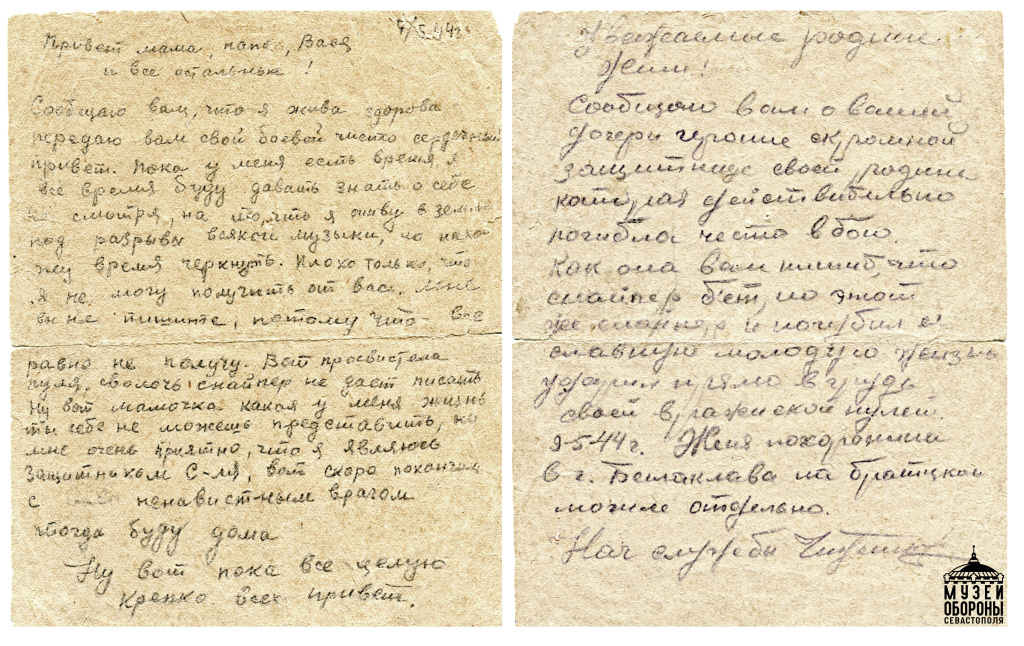 5 44г
Привет мама, папа, Вася
и все остальные!
Сообщаю вам, что я жива здорова
передаю вам свой боевой чисто сердечный
привет. Пока у меня есть время, я
все время буду давать знать о себе
не смотря, на то, что я живу в земле
под разрывы всякой музыки, но нахо-
жу время черкнуть. Плохо только, что
я не могу получить от вас. Мне
вы не пишите, потому что все
равно не получу. Вот просвистела
пуля, сволочь снайпер не дает писать
Ну вот мамочка какая у меня жизнь
ты себе не можешь представить, но
мне очень приятно, что я являюсь
защитником С-ля, вот скоро покончим
с ненавист-ным врагом
тогда буду дома
Ну вот пока все целую
крепко всех привет.
Уважаемые родители
Жени!
Сообщаю вам о вашей
дочери героине скромной
защитнице своей родины
которая действительно
погибла честно в бою.
Как она вам пишет, что
снайпер бьет, но этот
же снайпер и погубил её
славную молодую жизнь
ударил прямо в грудь
своей вражеской пулей.
9-5-44г. Женя похоронена
в г. Балаклава на братской
могиле отдельно.
Нач службы
МУЗЕЙ
ОБОРОНЫ
СЕВАСТОПОЛЯ